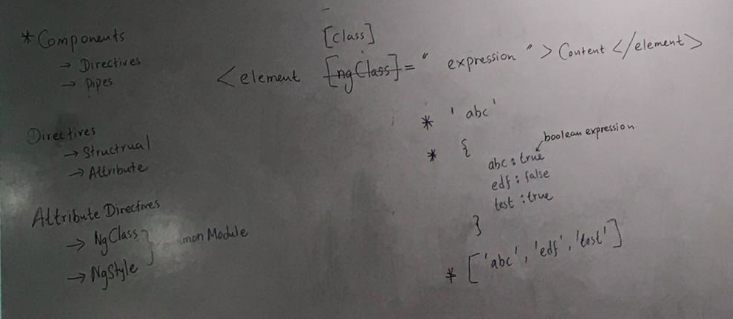 * Components
→ Directives
→ Pipes
Directives
→ Structrual
→ Attribute
Attribute Directives
→ NgClass
→ NgStyle
Module
[class]
<element [ngClass]=" expression "> Content </element>
* 'abc'
* {
boolean expression
abc : true
edf : false
test : true
}
* ['abc', 'edf', 'test']